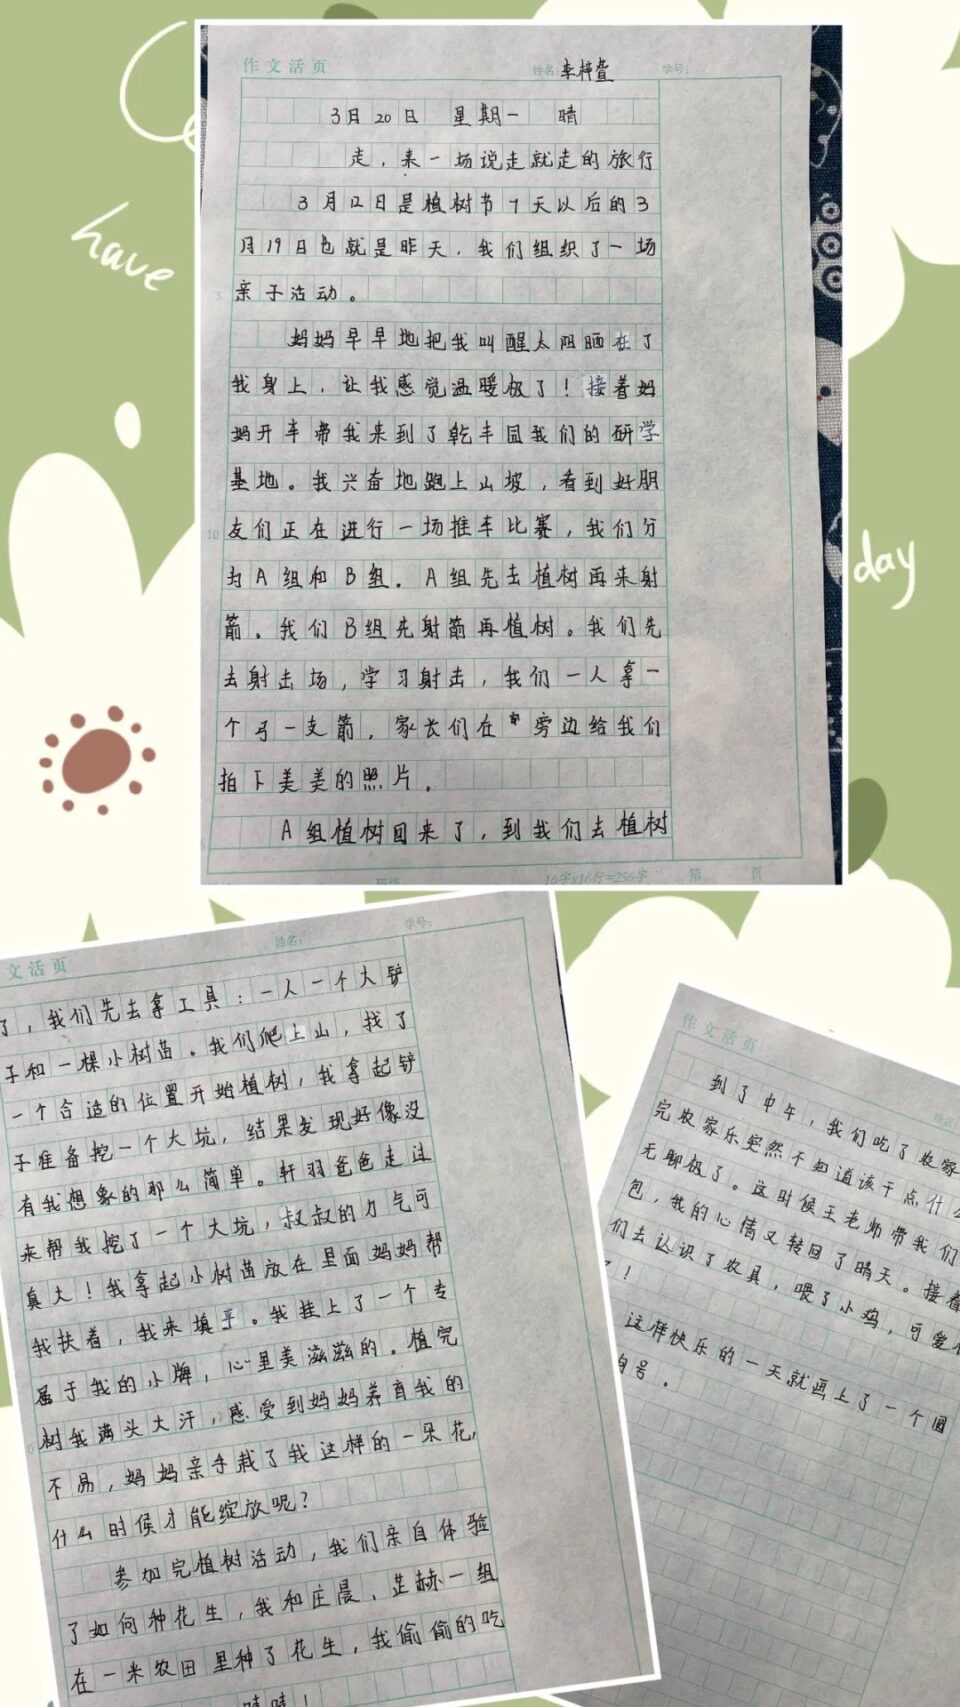 作文活页
姓名: 李梓萱 学号:
3月20日 星期一 晴
走，来一场说走就走的旅行
3月12日是植树节7天以后的3
月19日也就是昨天，我们组织了一场
亲子活动。
妈妈早早地把我叫醒太阳晒在了
我身上，让我感觉温暖极了！接着妈
妈开车带我来到了乾丰园我们的研学
基地。我兴奋地跑上山坡，看到好朋
友们正在进行一场推车比赛，我们分
为A组和B组。A组先去植树再来射
箭。我们B组先射箭再植树。我们先
去射击场，学习射击，我们一人拿一
个弓一支箭，家长们在旁边给我们
拍下美美的照片。
A组植树回来了，到我们去植树
16字×16行=256字 第 页
have
day
文活页
姓名: 学号:
了，我们先去拿工具：一人一个大铲
子和一棵小树苗。我们爬上山，找了
一个合适的位置开始植树，我拿起铲
子准备挖一个大坑，结果发现好像没
有我想象的那么简单。轩羽爸爸走过
来帮我挖了一个大坑，叔叔的力气可
真大！我拿起小树苗放在里面妈妈帮
我扶着，我来填平。我挂上了一个专
属于我的小牌，心里美滋滋的。植完
树我满头大汗，感受到妈妈养育我的
不易，妈妈亲手栽了我这样的一朵花，
什么时候才能绽放呢？
参加完植树活动，我们亲自体验
了如何种花生，我和庄晨、芷赫一组
在一米农田里种了花生，我偷偷的吃
作文活页
到了中午，我们吃了农家
完农家乐突然不知道该干点什么
无聊极了。这时候王老师带我们
包，我的心情又转回了晴天。接着
们去认识了农具，喂了小鸡，可爱
了！
这样快乐的一天就画上了一个圆
句号。